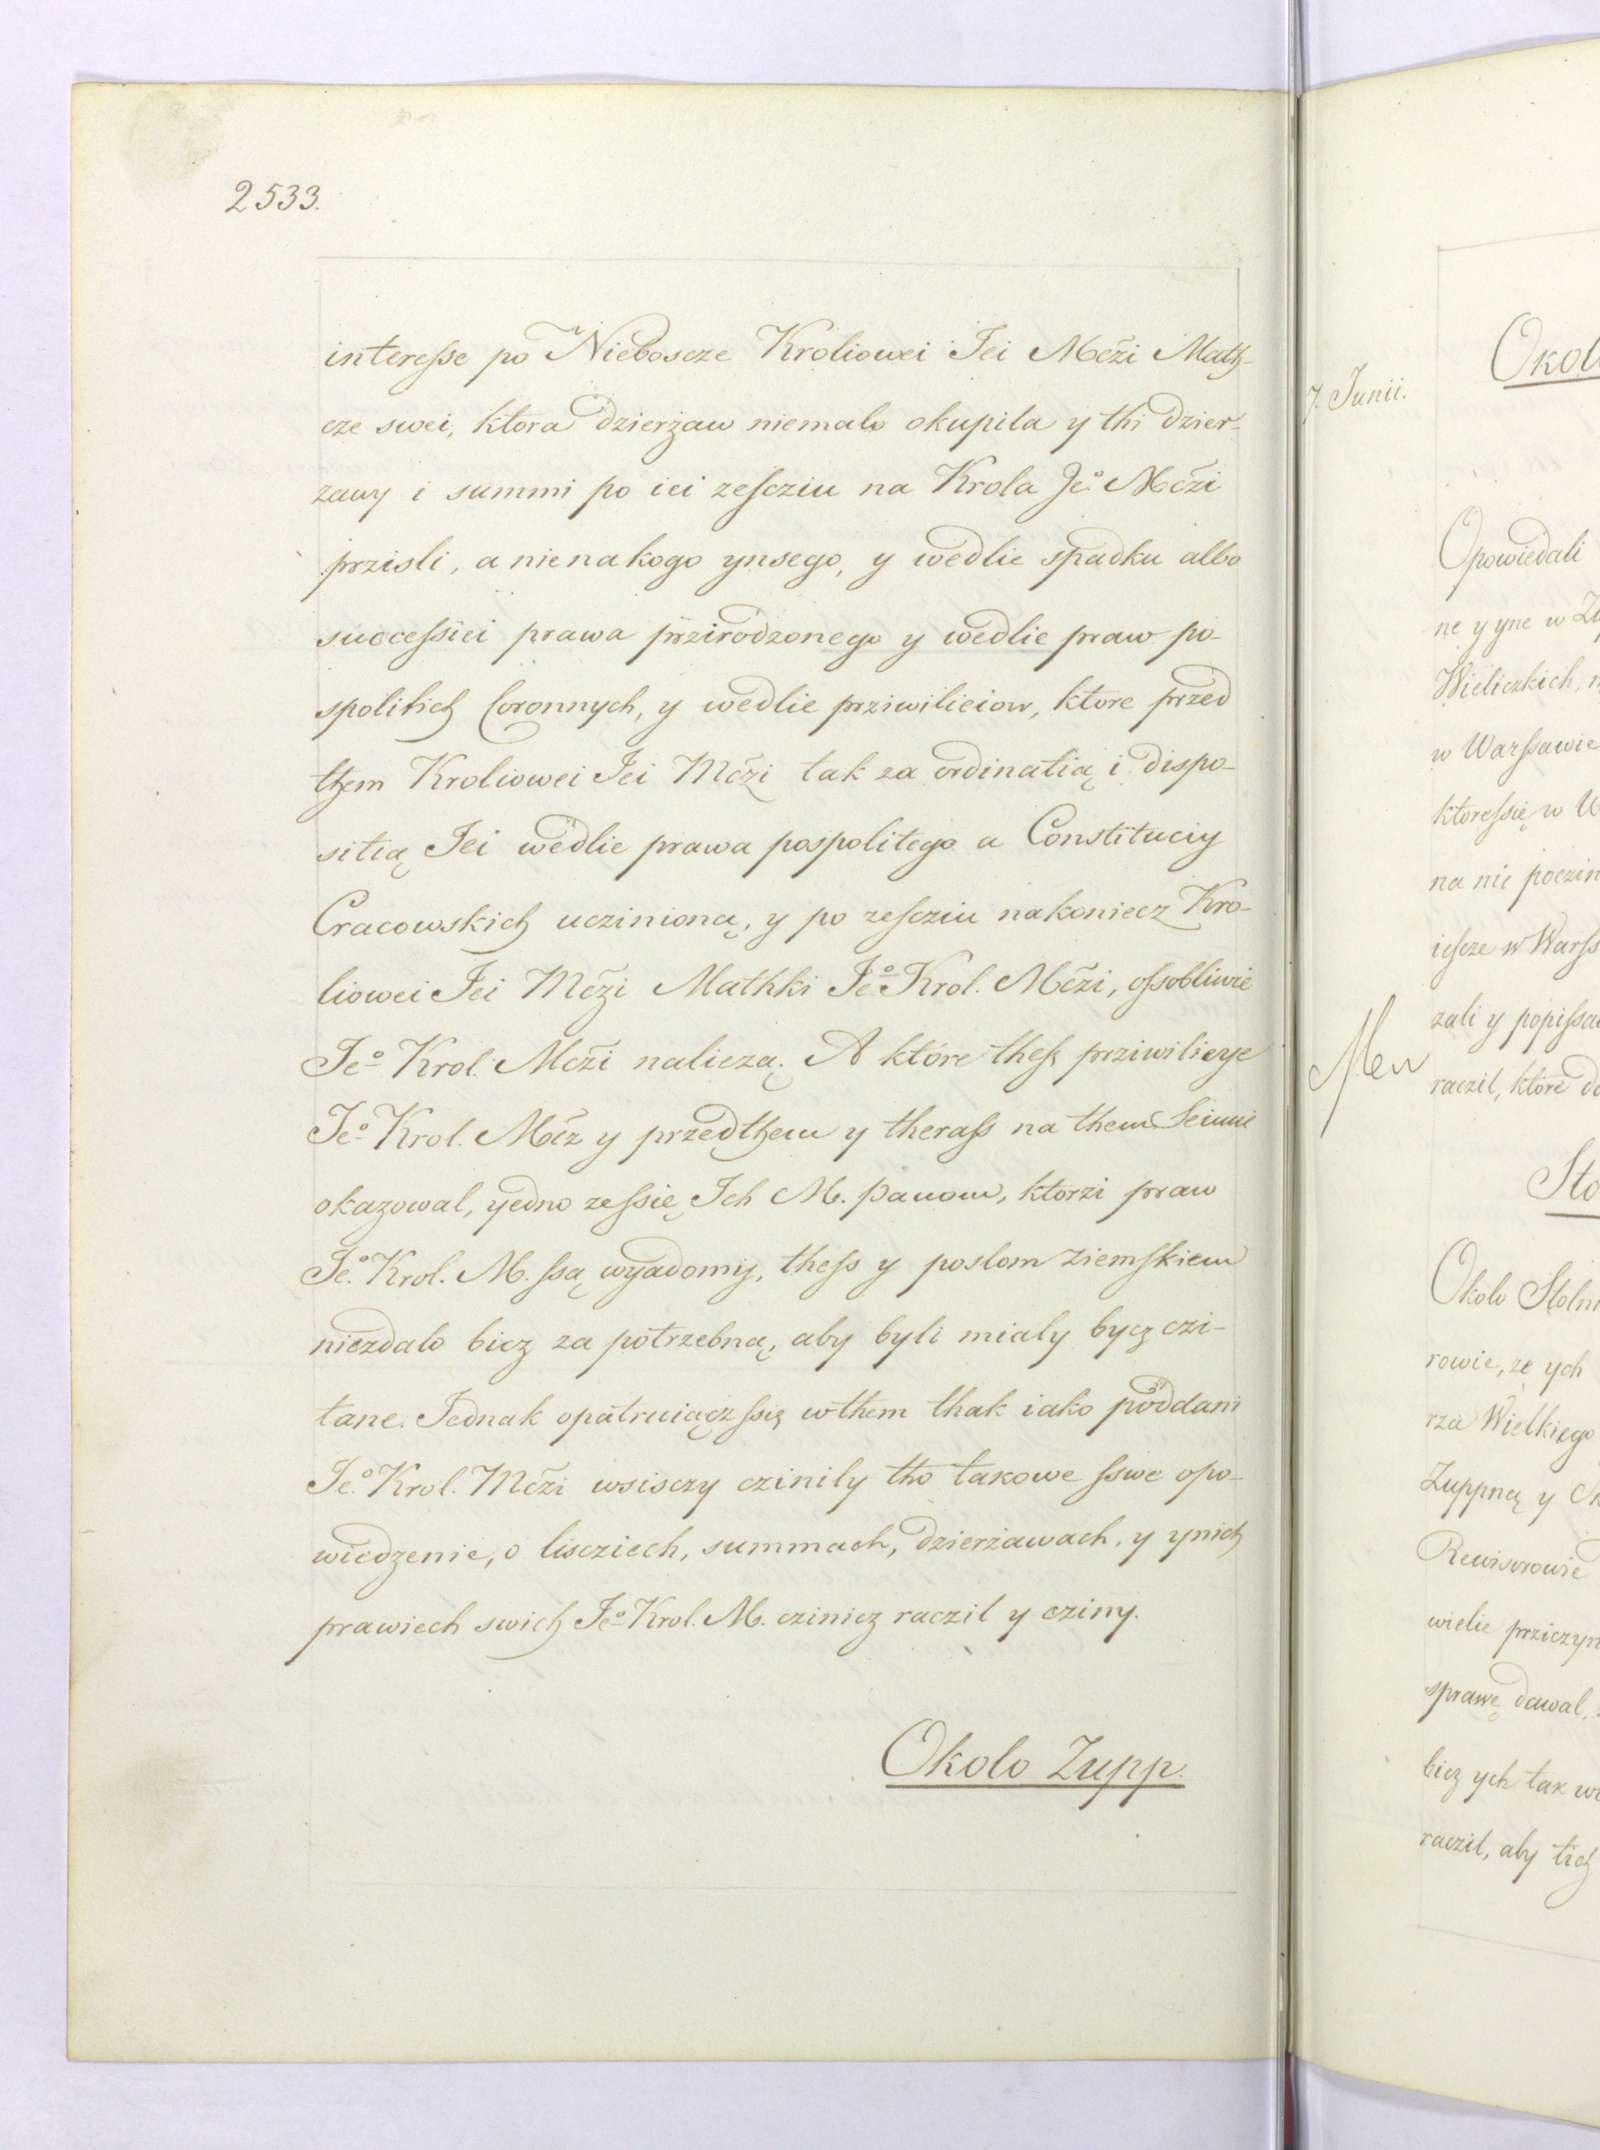 2533.
interesse po Nieboscze Kroliowei Jei Mczi Math-
cze swei, ktora dzierżaw niemalo okupila y thi dzier-
zawy i summi po iei zesciziu na Krola Je° Mczi
przisli, a nie na kogo ynsego, y wedlie spadku albo
successiei prawa przirodzonego y wedlie praw po-
spolitich Coronnych, y wedlie prziwilieiow, ktore przed
them Kroliowei Jei Mczi tak za ordinatią i dispo-
sitią Jei wedlie prawa pospolitego a Constituciy
Cracowskich ucziniona, y po zescziu nakoniecz Kro-
liowei Jei Mczi Mathki Je° Krol. Mczi, ossobliwie
Je° Krol. Mczi należą. A które thesz prziwilieye
Je° Krol. Mcz y przedthem y therass na them Seimie
okazowal, yedno ze ssię Ich M. Panom, ktorzi praw
Je° Krol. M. ssą wyadomij, thess y poslom ziemskiem
niezdalo bicz za potrzebną, aby byli mialy bycz czi-
tane. Jednak opatruiącz ssię w them thak iako poddani
Je° Krol. Mczi wsisczy czinily tho takowe sswe opo-
wiedzenie, o lisciech, summach, dzierżawach, y ynich
prawiech swich Je° Krol. M. czinicz raczil y cziny.
Okolo Zupp.
7. Junii.
Opowiedali
ne y yne w
Wieliczkich,
w Warssawie
ktoressię w
na nie
iescze w
zali y
raczil, które
Okolo
rowie, ze ych
rza Wielkiego
Zuppną y
Rewisorowie
wielie
sprawę dawal,
bicz ych tak
raczil, aby tich